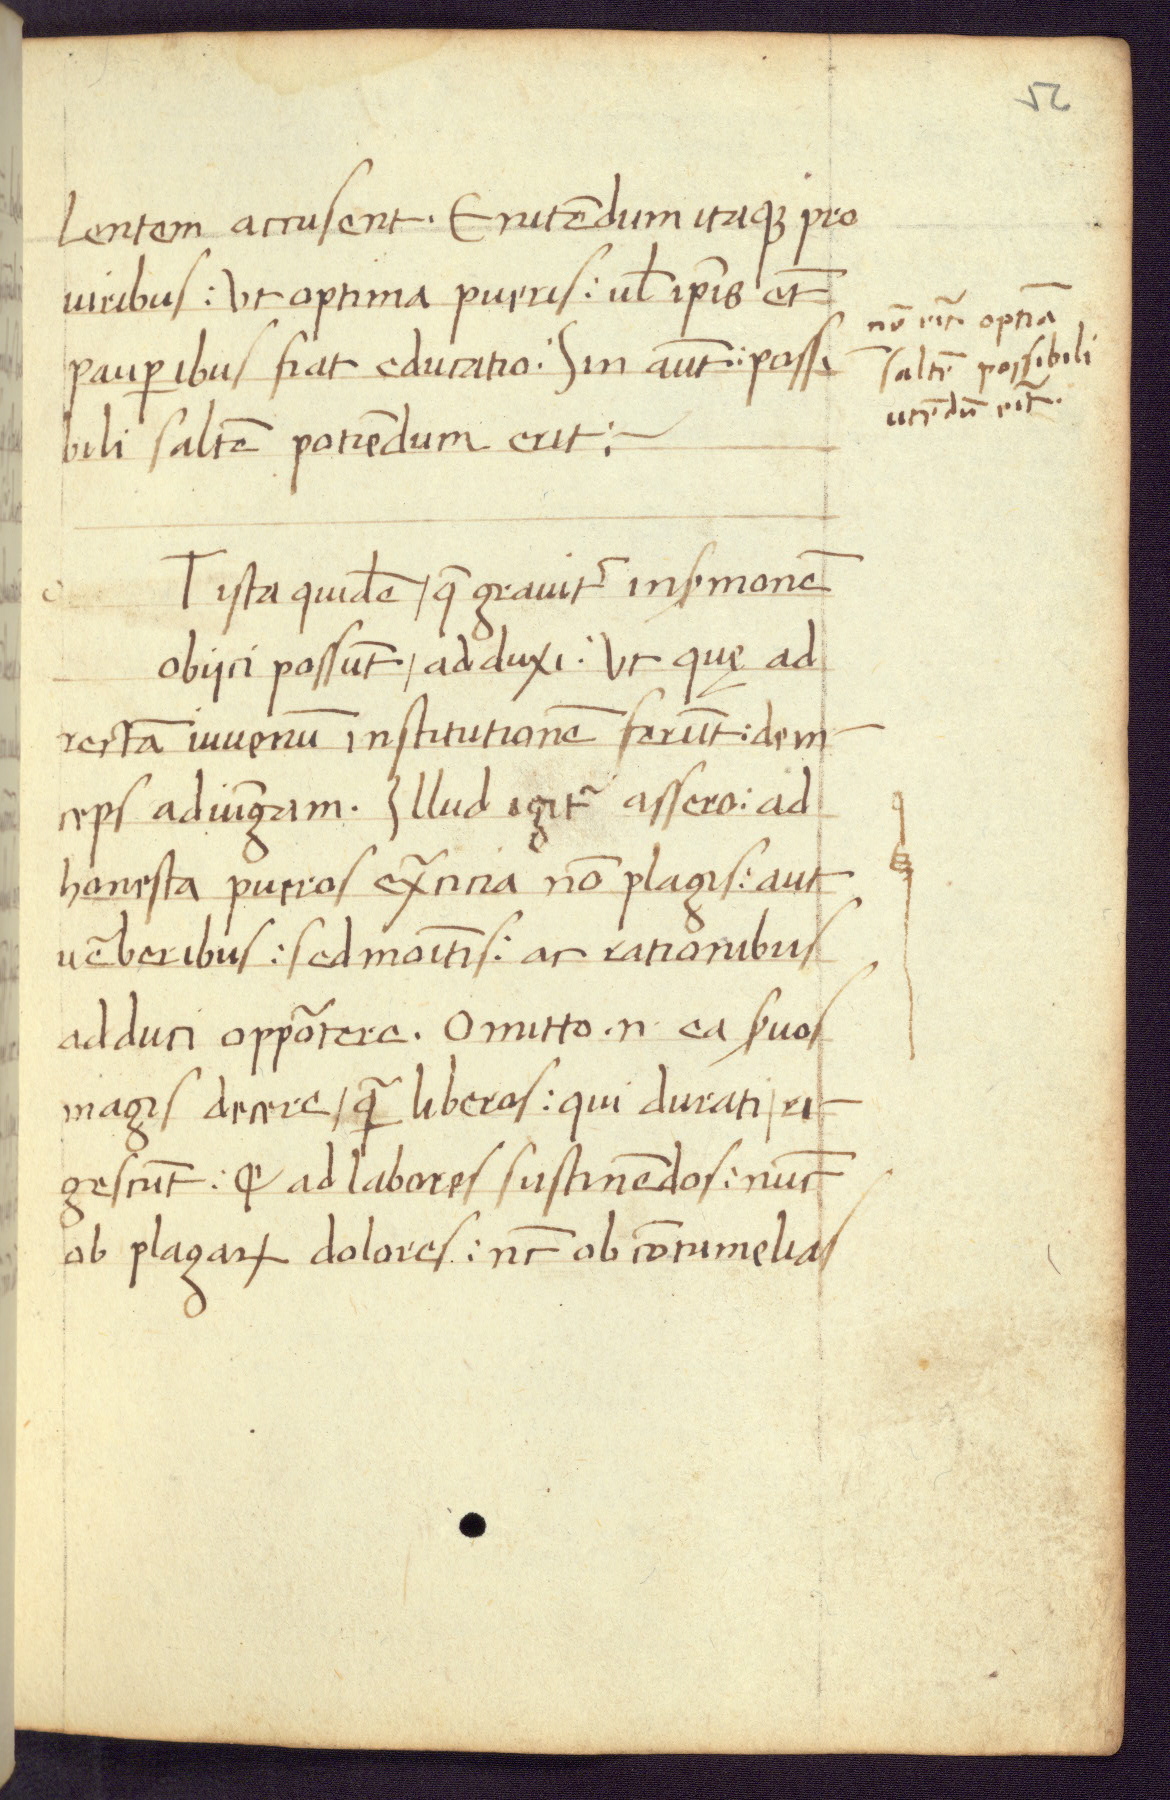 52
lentem accusent. Enitēdum itaqꝫ pro
uiribus: Vt optima pueris: ul̄ ip̄is et̄
pauꝑibus fiat educatio: Sin aut̄: possi
bili saltē potiēdum erit:
nō erit optīa
saltē possibili
utēdū erit.
T ista quidē / q̄ grauit᷑ in ẜmonē
obijci possūt, / adduxi: Vt quę ad
rectā iuuenū institutionē ferūt: dein
ceps adiūgam. Illud igit᷑ assero: ad
honesta pueros ex̄citia nō plagis: aut
uēberibus: sed moītis: ac rationibus
adduci opp̄ōtere. Omitto .n. ea ẜuos
magis decere, / q̄ꝫ liberos: qui durati / ri
gescūt: Et ad labores sustinēdos: nūc
ob plagaꝝ dolores: nc̄ ob cōtumelias